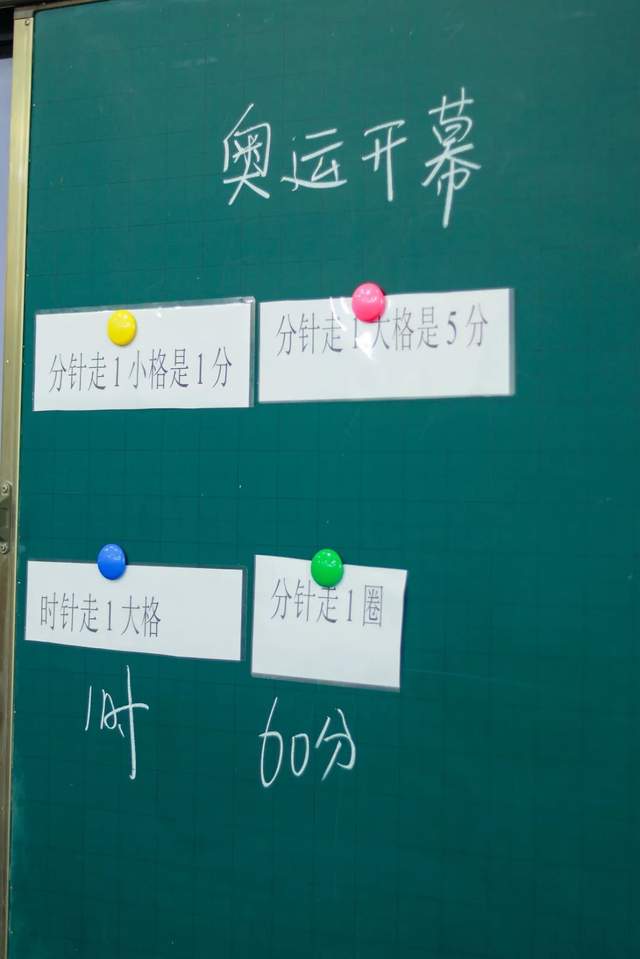 奥运开幕
分针走1小格是1分
分针走1大格是5分
时针走1大格
分针走1圈
1时
60分